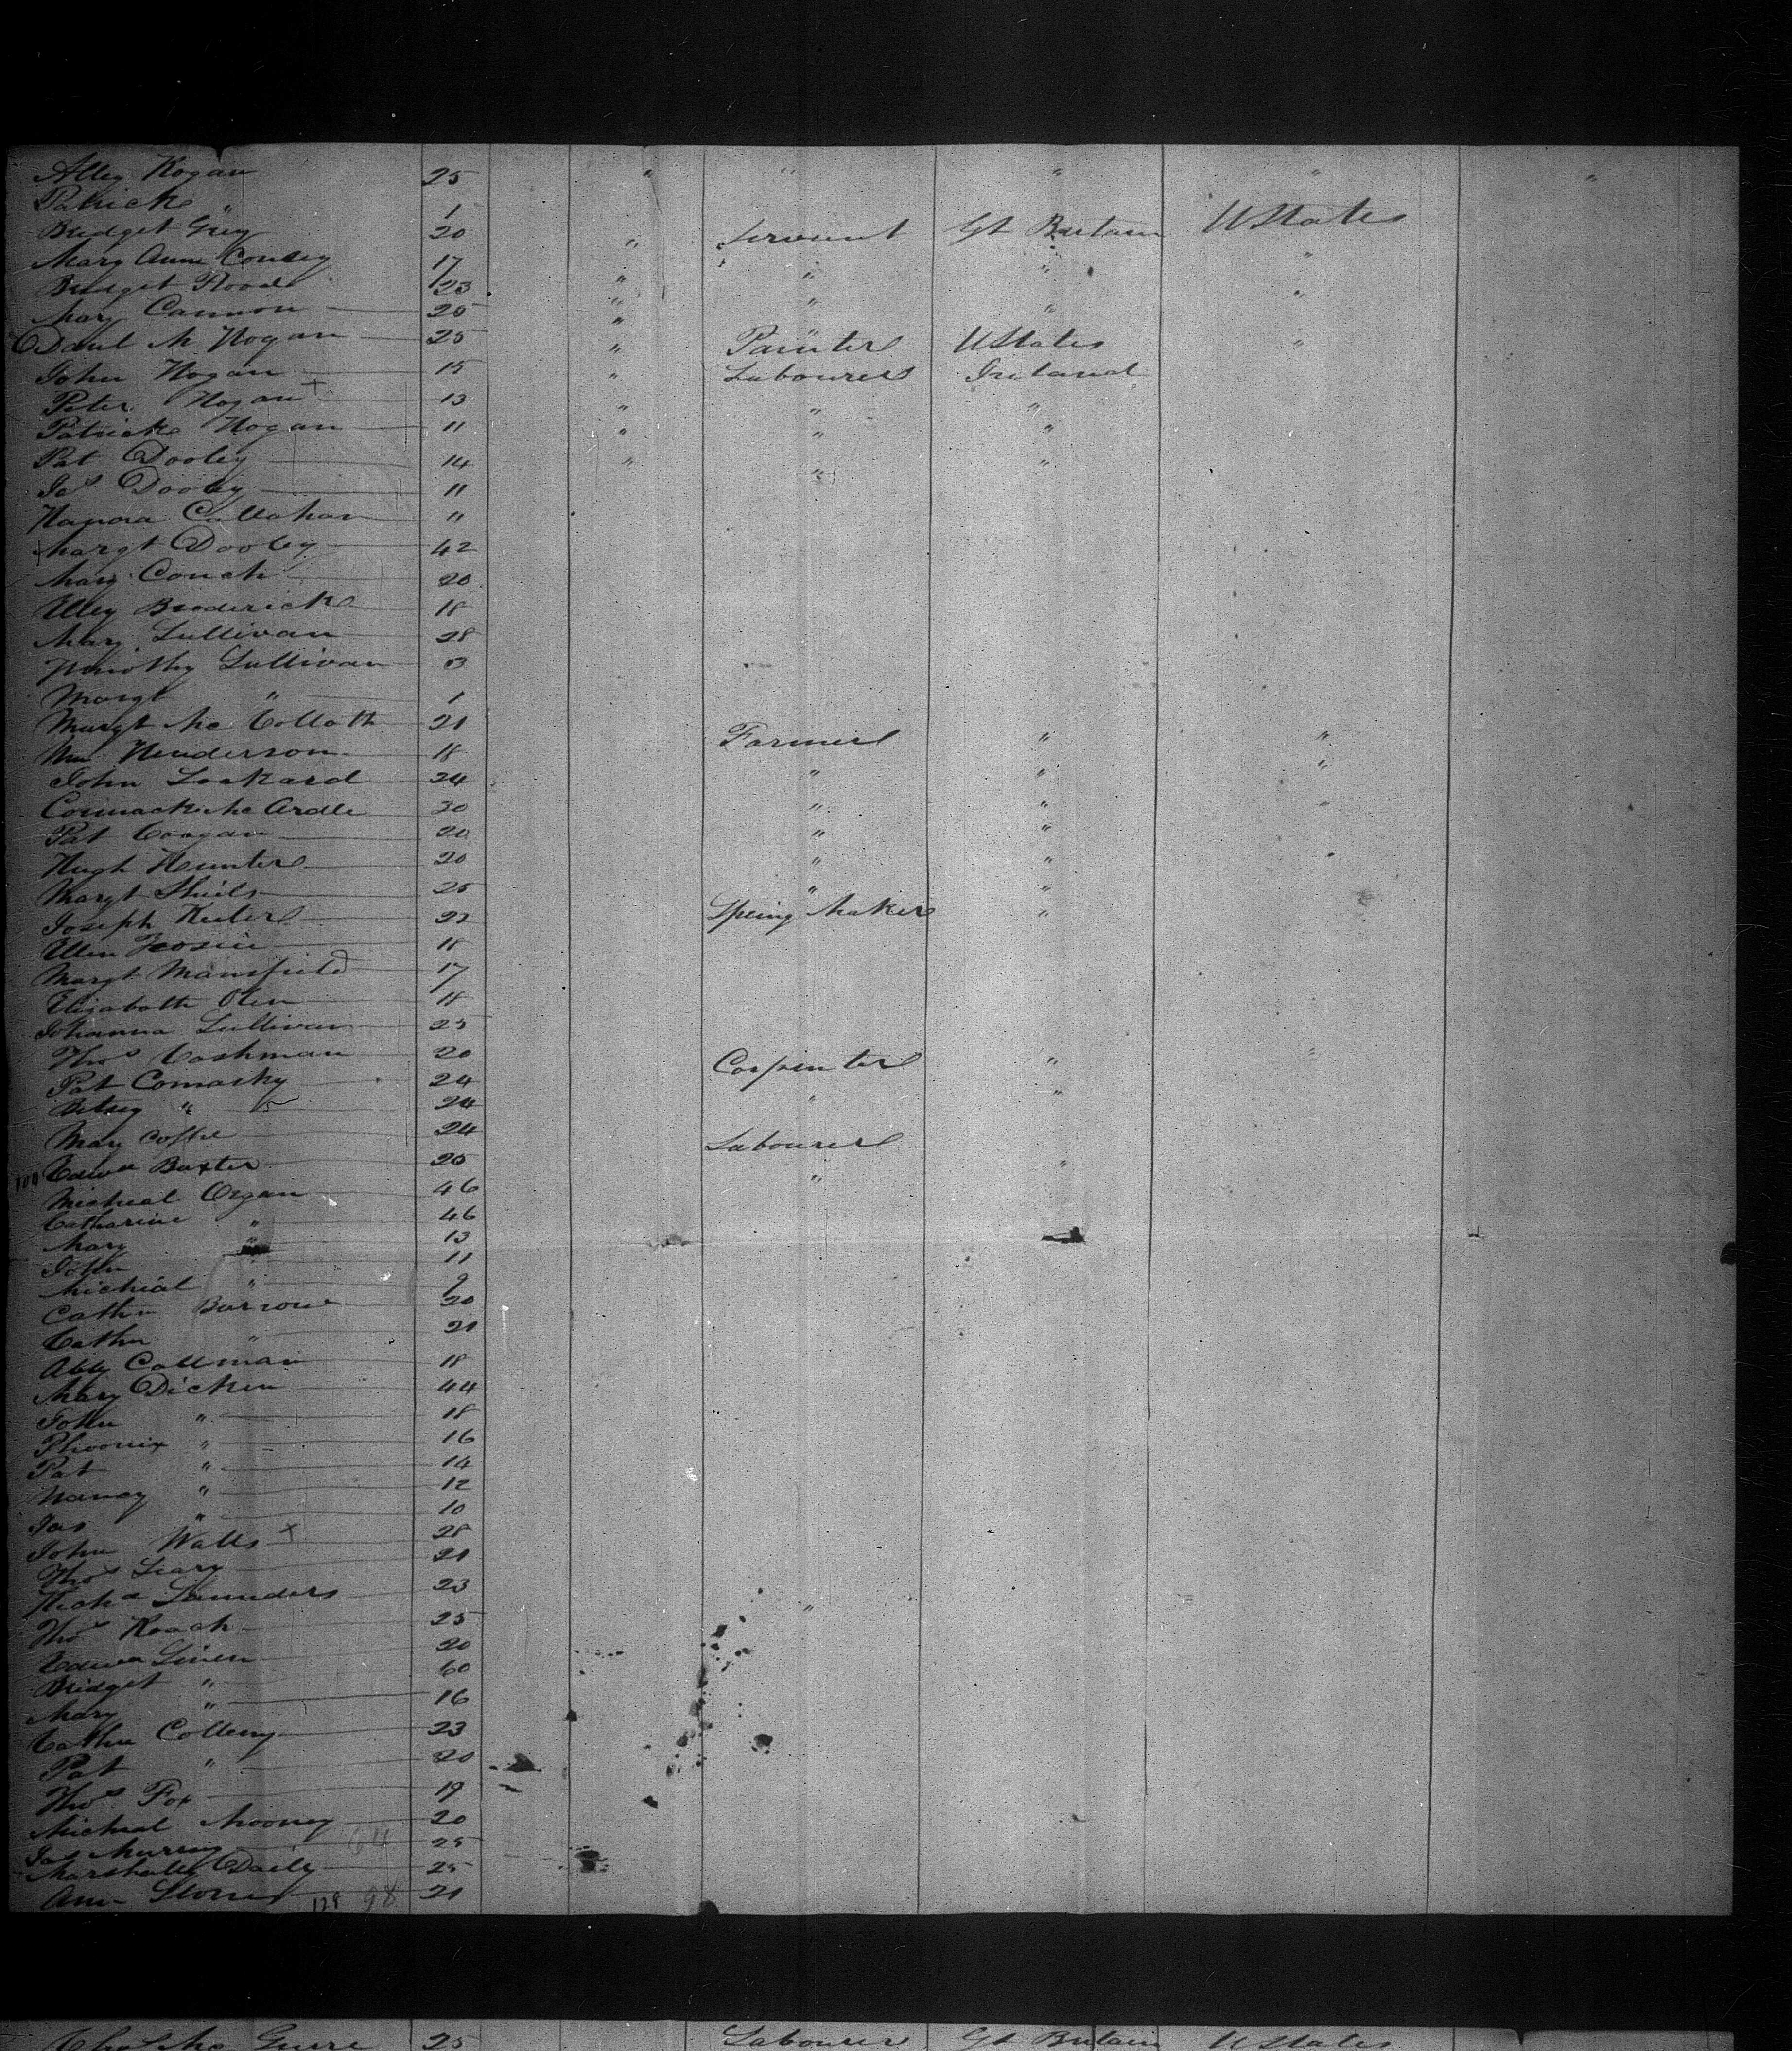 Alley Hogan 25 " " " " "
Patrick " 1
Bridget Grey 20 " Servant Gt Britain U States
Mary Anne Conley 17 " " " "
Bridget Flood 23 " " "
Mary Cannon 20 " "
Danl M Hogan 25 " Painter U States "
John Hogan 15 " Labourer Ireland
Peter Hogan 13 " " "
Patrick Hogan 11 " " "
Pat Dooley 14 " " "
Jas Dooley 11
Hanora Callahan 11
Margt Dooley 42
Mary Conah 20
Elley Broderick 18
Mary Sullivan 28
Timothy Sullivan 3
Margt " 1
Margt Mc Collath 21
Wm Henderson 18 Farmer " "
John Lockard 24 " " "
Cormack Mc Ardle 30 " " "
Pat Coogan 20 " "
Hugh Hunter 20 " "
Margt Shiels 25 " "
Joseph 22 Spring Maker "
Ellen 18
Margt Mansfield 17
Elizabeth 18
Johanna Sullivan 25
Thos Cashman 20 Carpenter " "
Pat Comasky 24 " "
Betsey " 24
Mary Coffee 24 Labourer
100 Edwd Baxter 20 " "
Micheal Organ 46
Catharine " 46
Mary " 13
John " 11
Micheal " 9
Cathn Barrow 20
Cathn " 21
Abby Callman 18
Mary Dicken 44
John " 18
Phoenix " 16
Pat " 14
Nancy " 12
Jas " 10
John Walls 28
Thos Leary 21
Richd Saunders 23 "
Thos Roach 25
Edwd Linen 20
Bridget " 60
Mary " 16
Cathn Colleny 23
Pat " 20
Thos Fox 19
Micheal Mooney 20
Jas Murray 64 25
Marshall Daily 25
Ann Stones 128 98 21
Mc Guire 25 Labourer Gt Britain U States